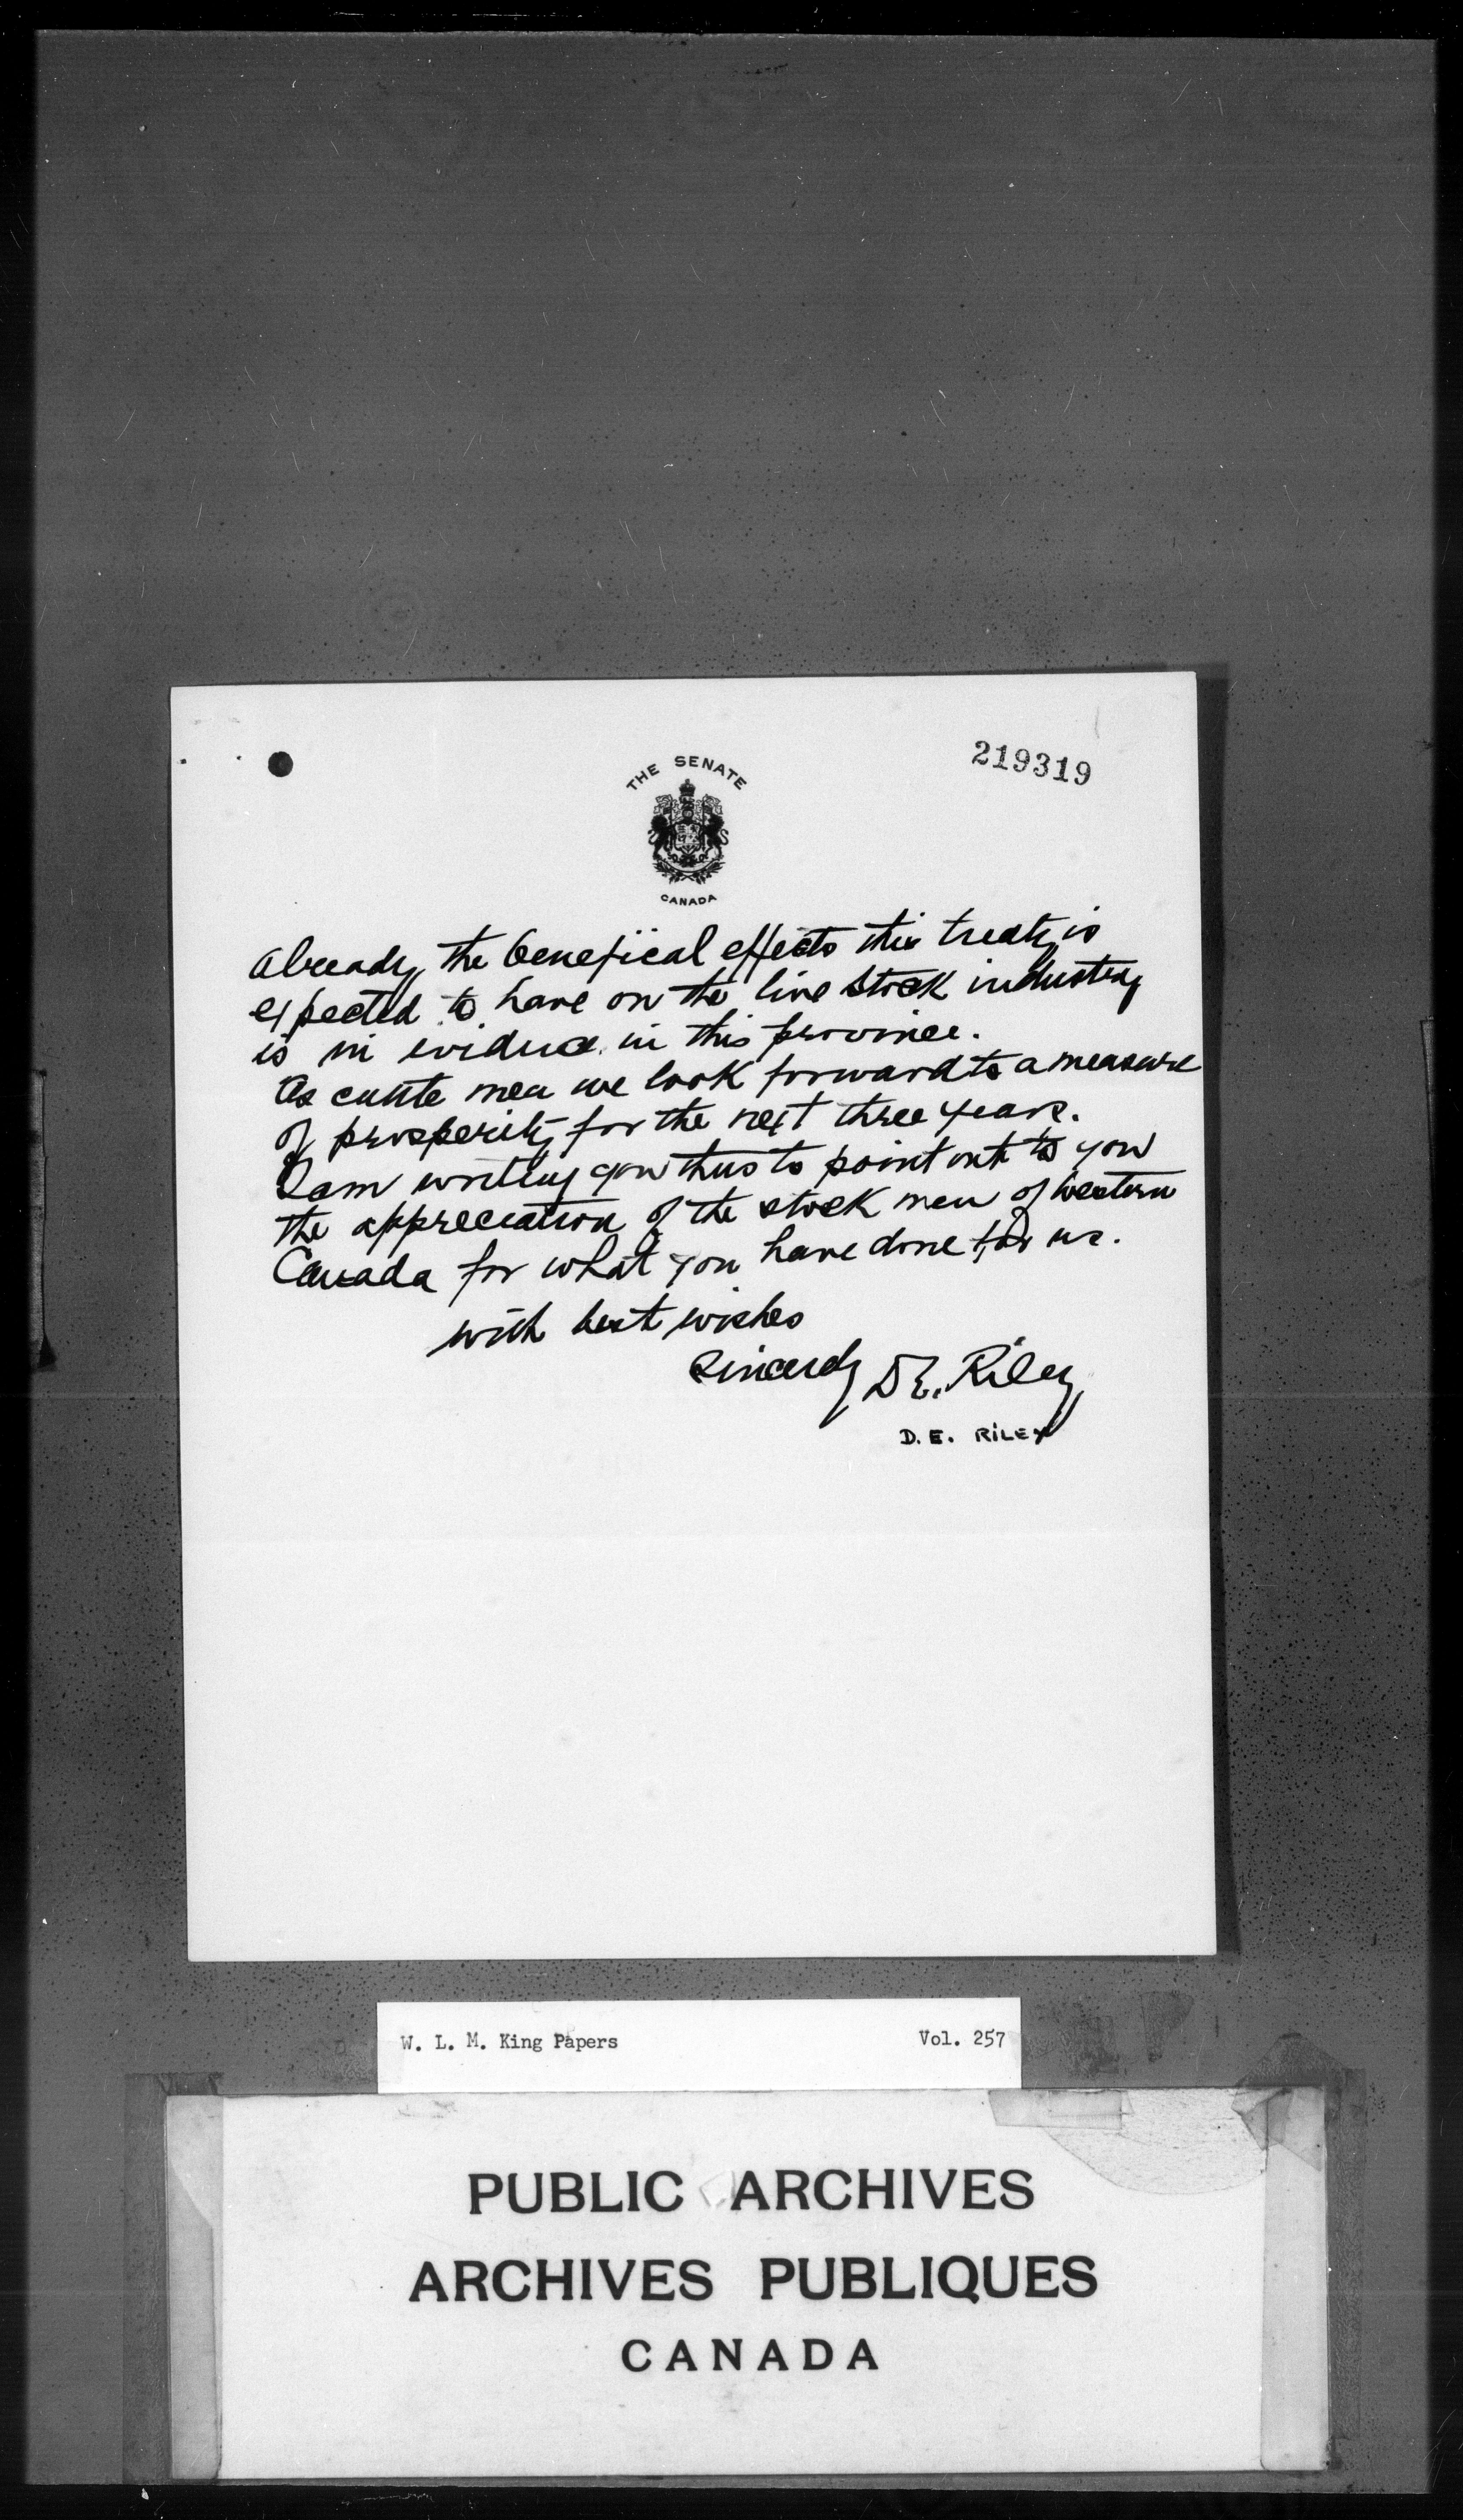 219319
THE SENATE
CANADA
Already the benefical effects this treaty is
expected to have on the live stock industry
is in evidence in this province.
As cattle men we look forward to a measure
of prosperity for the next three years.
I am writing you thus to point out to you
the appreciation of the stock men of western
Canada for what you have done for us.
with best wishes
Sincerely D E. Riley
D.E. RILEY
W. L. M. King Papers Vol. 257
PUBLIC ARCHIVES
ARCHIVES PUBLIQUES
CANADA